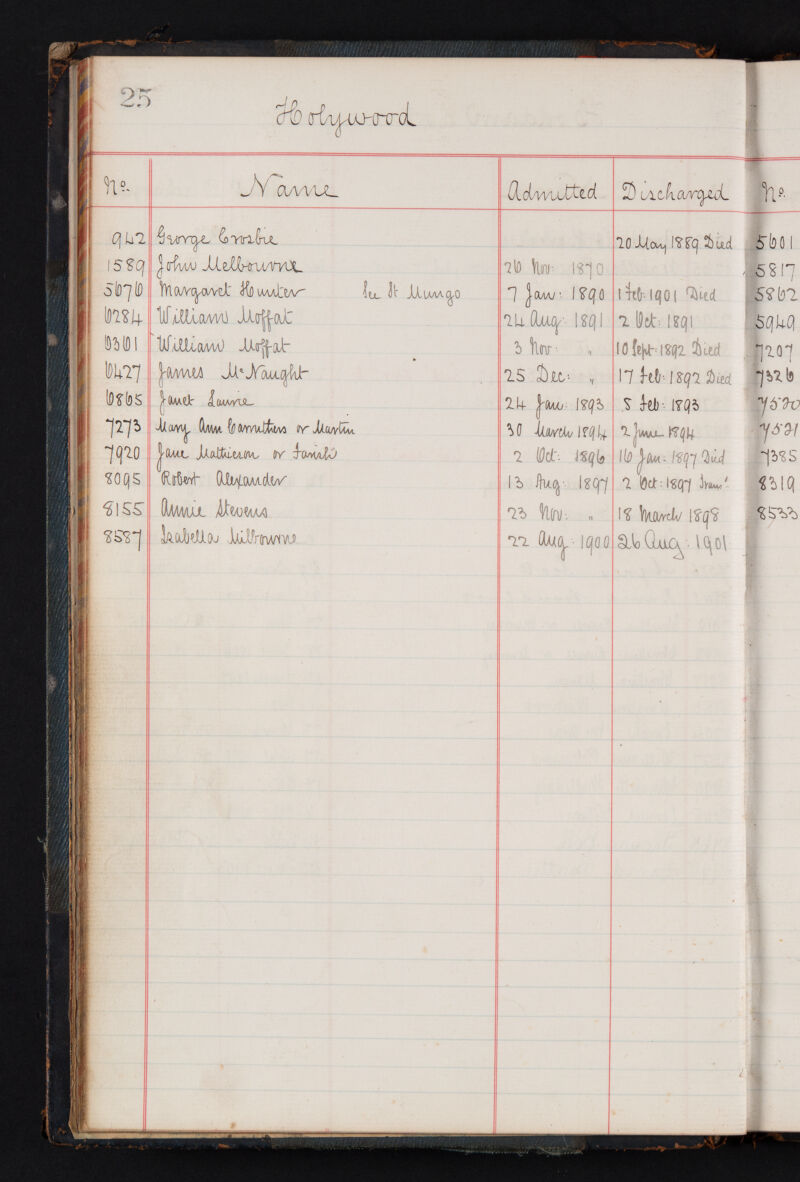 25
Holywood
No. Name Admitted Discharged No.
942 George Crosbie 20 May 1889 Died 5601
1589 John Melbourne 26 Nov: 1870 5817
5676 Margaret Hunter See St Mungo 7 Jan: 1890 1 Feb: 1901 Died 5862
6284 William Moffat 24 Aug: 1891 2 Oct: 1891 5949
6361 William Moffat 3 Nov: " 10 Sept: 1892 Died 7207
6427 James McNaught 25 Dec: " 17 Feb: 1892 Died 7326
6865 Janet Lawrie 24 Jan: 1893 5 Feb: 1893
7273 Mary Ann Carruthers or Martin 30 March 1894 2 June 1894
7920 Jane Mathieson or 2 Oct: 1896 16 Jan: 1897 Died 7385
8095 Robert Alexander 13 Aug: 1897 2 Oct: 1897 8319
8155 Annie Stevens 23 Nov: " 18 March 1898 8533
8587 Isabella Milbourne 22 Aug: 1900 26 Aug: 1901